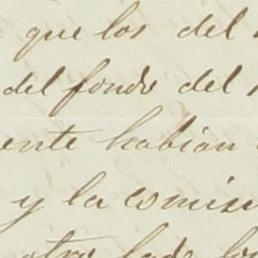 que los del
del fondo del
ente habian
y la comisi
otro lado